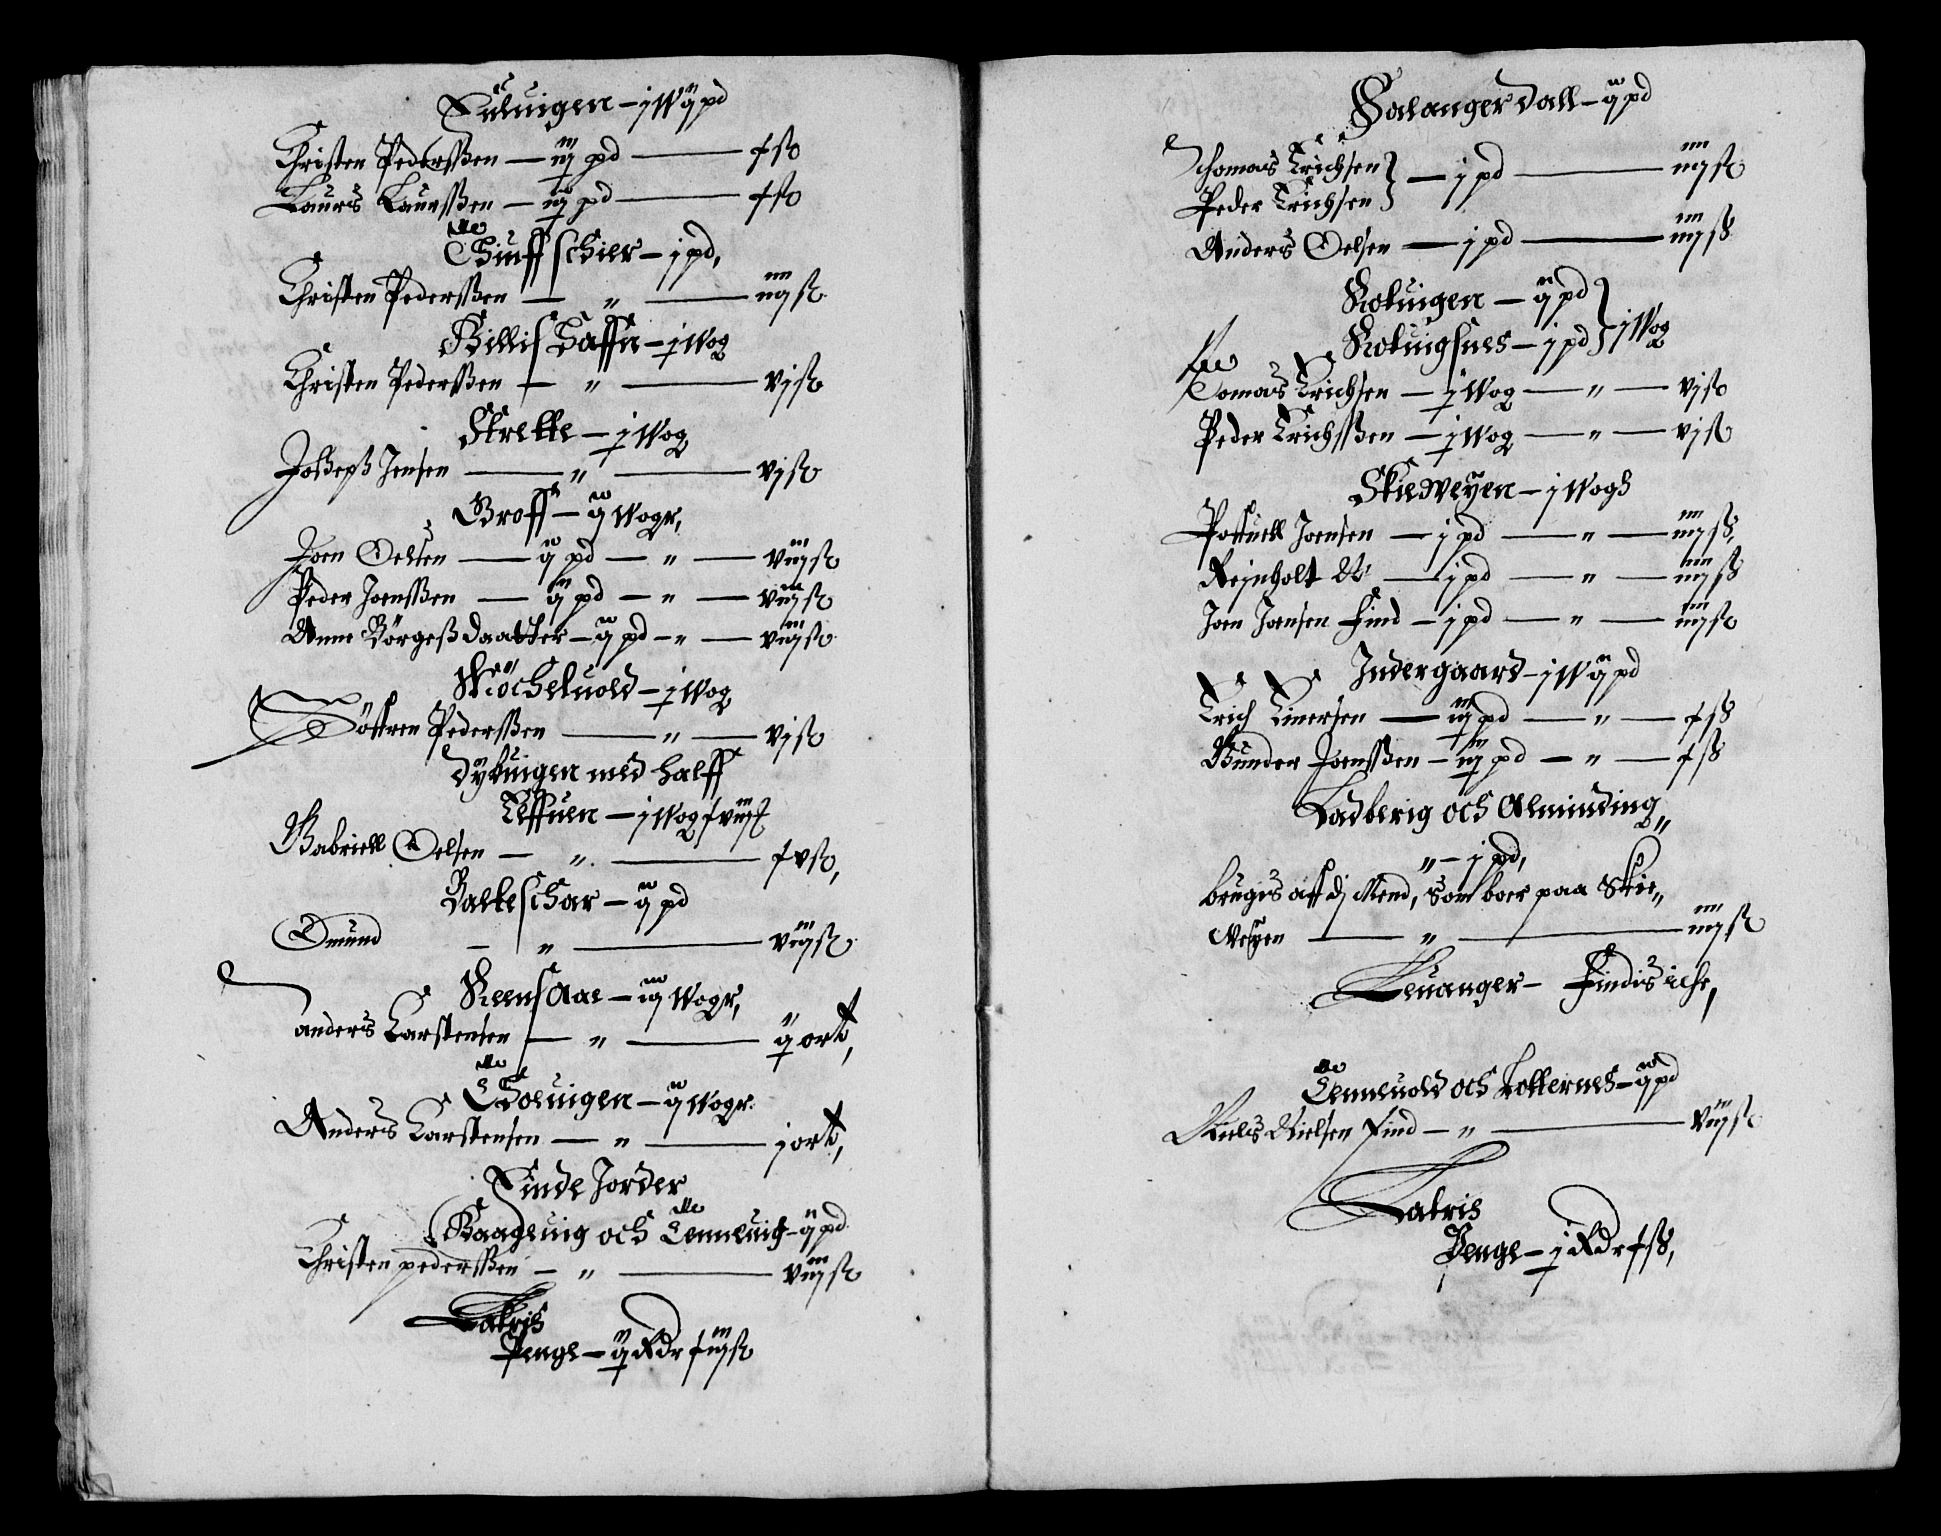 Suluigen – j W ij pd
Christen Pederssen — iij pd — f ß
Laurs Laurssen — iij pd — f ß
Giuff schier – j pd,
Christen Pederssen — „ — iiij ß
Billis Haffn – j Wog
Christen Pederssen — „ — vj ß
Strette – j Wog
Joseph Jensen — „ — vj ß
Groff – ij Wogr,
Joen Oelsen — ij pd — „ — viij ß
Peder Joenssen — ij pd — „ — viij ß
Anne Börgesdaatter – ij pd – „ — viij ß
Sköcheluold – j Wog
Söffren Pederssen — „ — vj ß
Dyruigen med halff
Leffuen – j Wog f viij ß
Gabriell Oelsen — „ — f v ß,
Balteschar – ij pd
Omund — „ — viij ß
Reens Aae – iij Wogr,
anders Carstensen — „ — ij ort,
Soluigen – ij Wogr.
Anders Carstensen — „ — j ort,
Finde Jorder
Baageuig och Lemmuig – ij pd
Christen pederssen — „ — viij ß
Lateris
Penge – ij Rdr f iiij ß
Salanger Dall – ij pd
Thomas Erichsen } — j pd — iiij ß
Peder Erichsen }
Anders Oelsen — j pd — iiij ß
Roluigen – ij pd } j Wog
Roluigsnes – j pd }
Tomas Erichsen — j Wog — „ — vj ß
Peder Erichssen — j Wog — „ — vj ß
Skiedveyen – j Wogh
Poffuell Joensen — j pd — „ — iiij ß,
Reinholt N: — j pd — „ — iiij ß
Joen Joensen Find — j pd — „ — iiij ß
Indergaard – j W ij pd
Erich Einersen — iij pd — „ — f ß
Gunder Joenssen – iij pd — „ — f ß
Ladberig och Alminding„
„ – j pd,
bruges aff dj Mend, som boer paa Skie„
Weyen — „ — iiij ß
Leuanger – Findis iche,
Lemeuold och Kotternes – ij pd
Niels Nielsen Find — „ — viij ß
Lateris
Penge – j Rdr f ß,